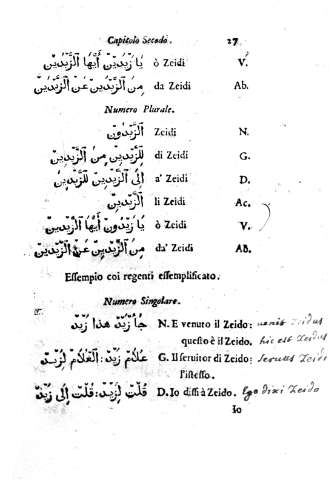 Capitolo Secōdo. 27
يَا زَيْدَيْنِ أَيُّهَا ٱلزَّيْدَيْنِ ò Zeidi V.
مِنَ ٱلزَّيْدَيْنِ عَنِ ٱلزَّيْدَيْنِ da Zeidi Ab.
Numero Plurale.
ٱلزَّيْدُونَ Zeidi N.
لِلزَّيْدِينَ مِنَ ٱلزَّيْدِينَ di Zeidi G.
إِلَى ٱلزَّيْدِينَ لِلزَّيْدِينَ a' Zeidi D.
ٱلزَّيْدِينَ li Zeidi Ac.
يَا زَيْدُونَ أَيُّهَا ٱلزَّيْدُونَ ò Zeidi V.
مِنَ ٱلزَّيْدِينَ عَنِ ٱلزَّيْدِينَ da' Zeidi Ab.
Essempio coi regenti essemplificato.
Numero Singolare.
جُأَ زَيْدٌ هَذَا زَيْدٌ N. E venuto il Zeido: venit Zeidus
questo è il Zeido. hic est Zeidus
غُلَامُ زَيْدٍ: ٱلْغُلَامُ لِزَيْدٍ G. Il seruitor di Zeido: Seruus Zeidi
l'istesso.
قُلْتُ لِزَيْدٍ: قُلْتُ إِلَى زَيْدٍ D. Io dissi à Zeido. Ego dixi Zeido
Io